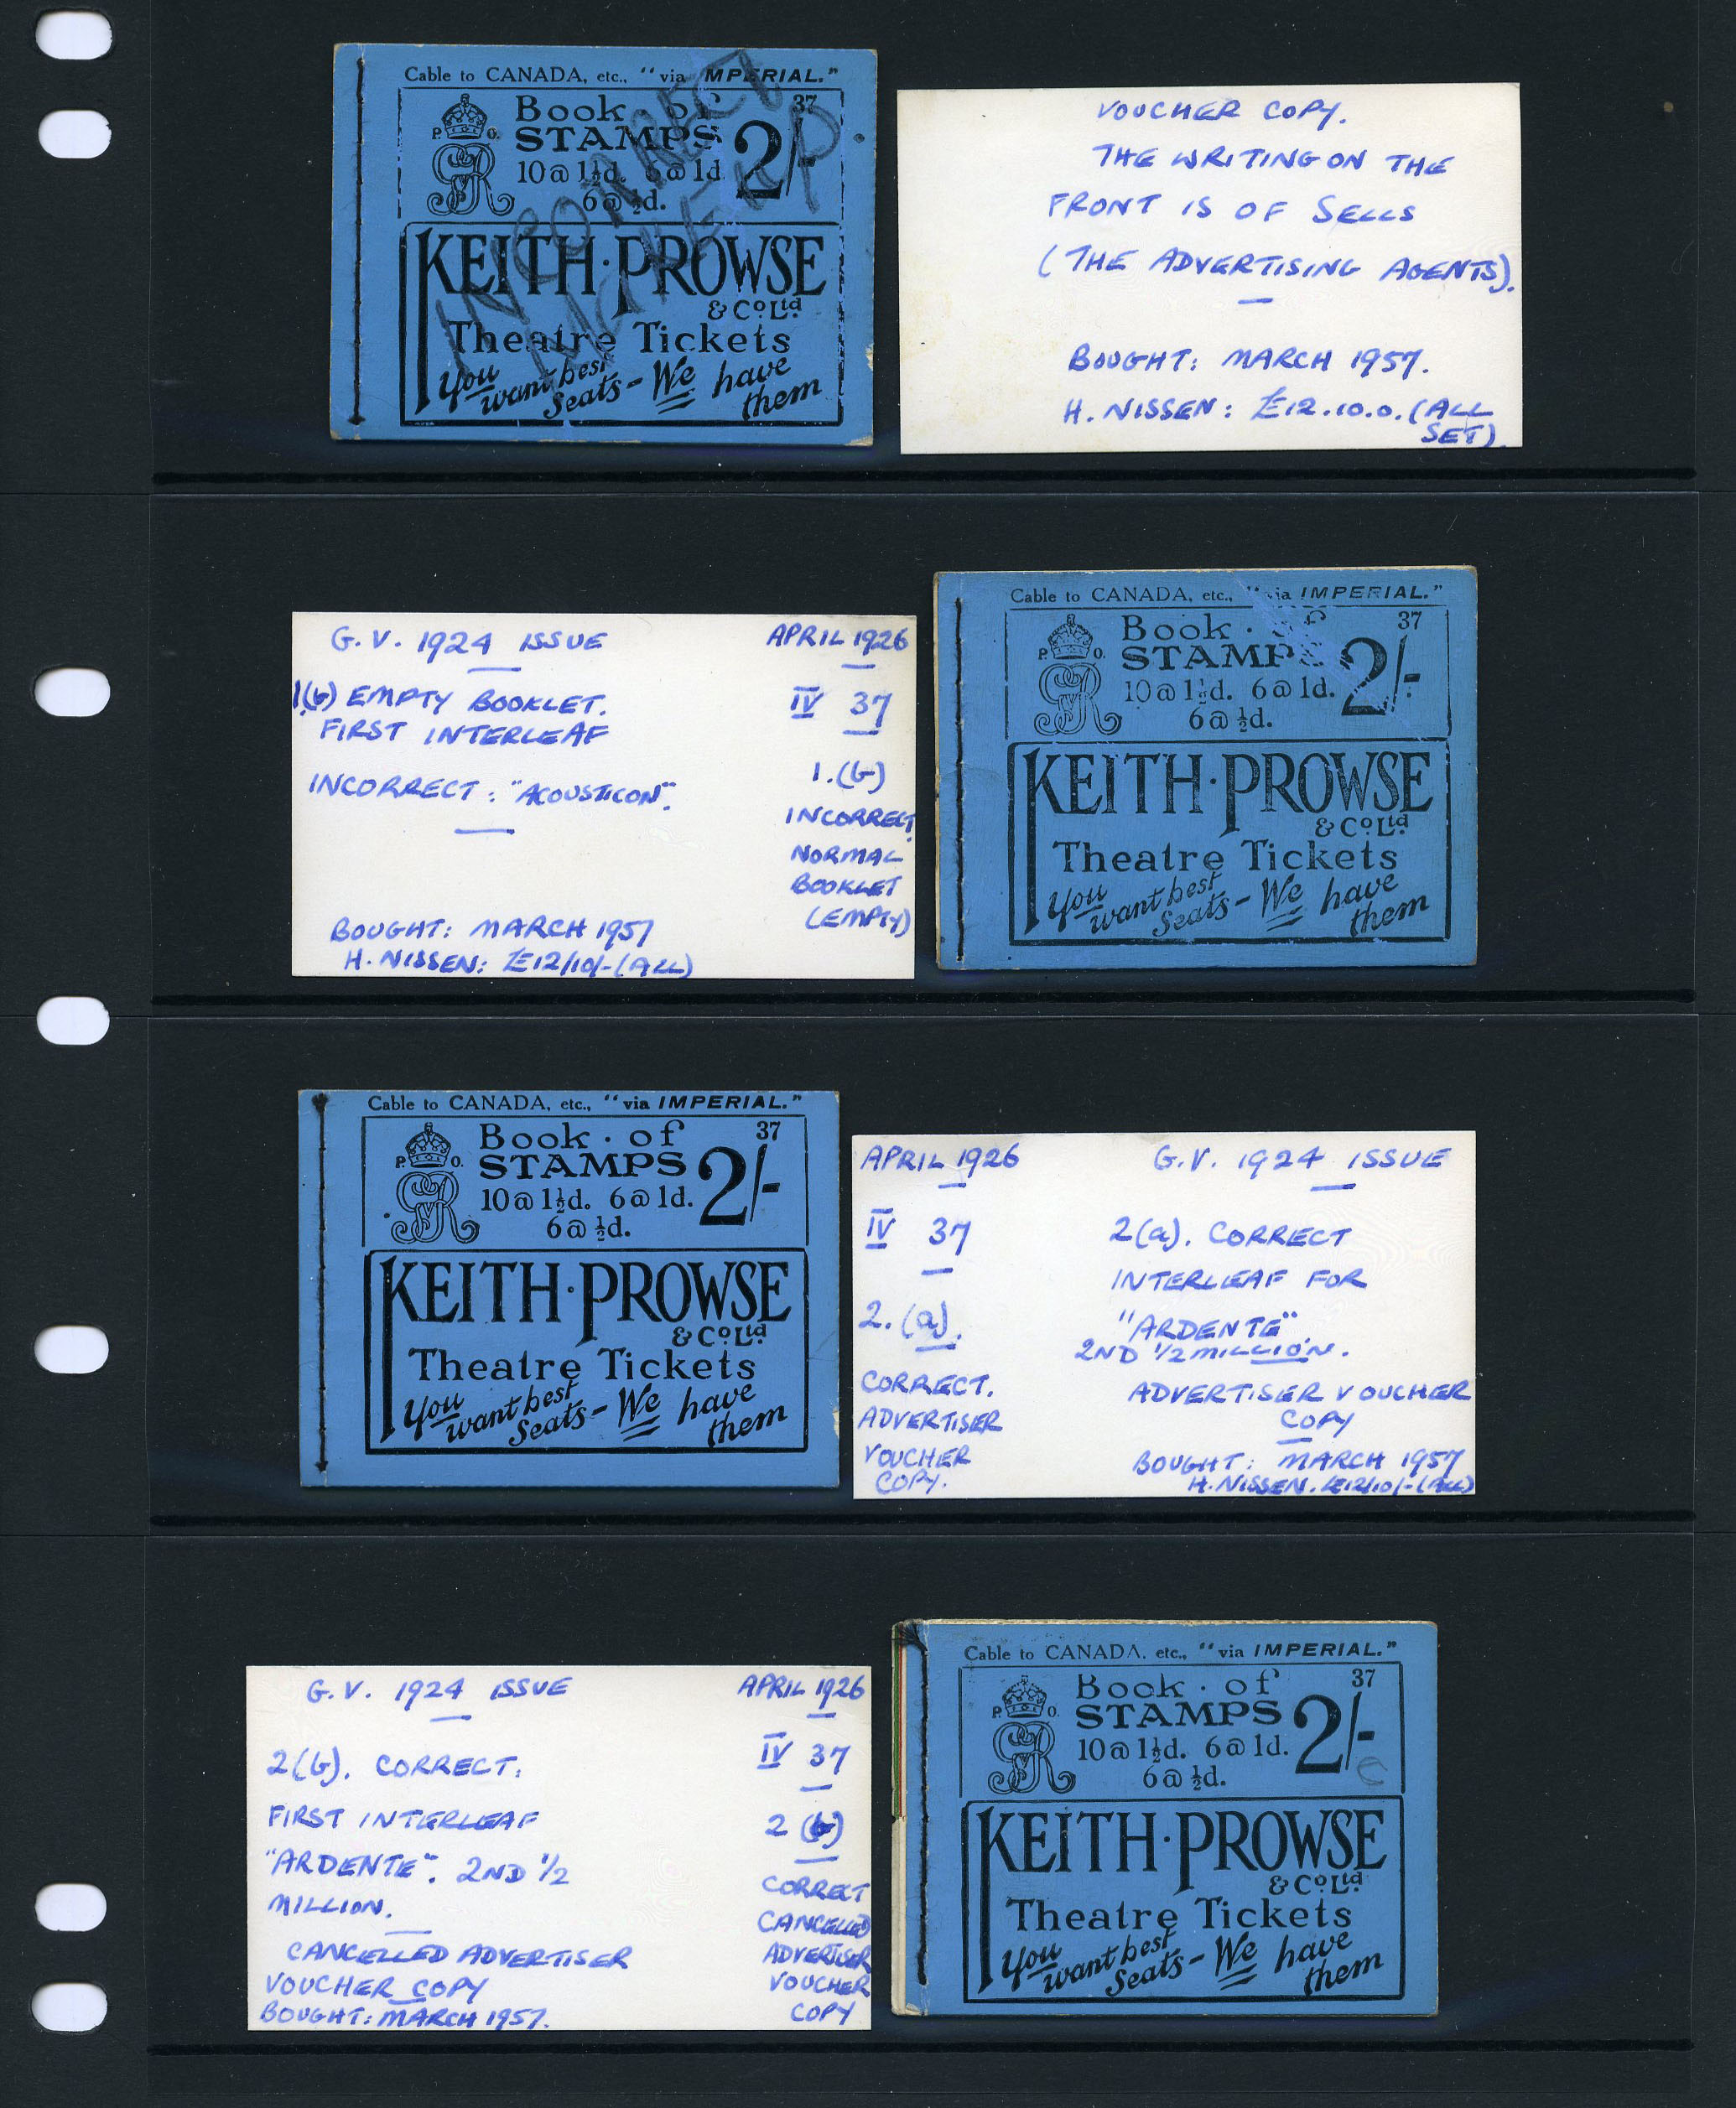 Cable to CANADA, etc., "via IMPERIAL."
P. O.
Book · of 37
STAMPS 2/-
10@1½d. 6@1d
6@½d.
INCORRECT
MAKE-UP
KEITH·PROWSE
& Co Ltd.
Theatre Tickets
You want best
Seats - We have
them
VOUCHER COPY.
THE WRITING ON THE
FRONT IS OF SELLS
(THE ADVERTISING AGENTS).
BOUGHT: MARCH 1957.
H. NISSEN: £12.10.0. (ALL
SET)
G.V. 1924 ISSUE
1(b) EMPTY BOOKLET.
FIRST INTERLEAF
INCORRECT: "ACOUSTICON".
BOUGHT: MARCH 1957
H. NISSEN: £12/10/- (ALL)
APRIL 1926
IV 37
1.(b)
INCORRECT.
NORMAL
BOOKLET
(EMPTY)
Cable to CANADA, etc., "via IMPERIAL."
P. O.
Book · of 37
STAMPS 2/-
10@1½d. 6@1d.
6@½d.
KEITH·PROWSE
& Co Ltd.
Theatre Tickets
You want best
Seats - We have
them
Cable to CANADA, etc., "via IMPERIAL."
P. O.
Book · of 37
STAMPS 2/-
10@1½d. 6@1d.
6@½d.
KEITH·PROWSE
& Co Ltd.
Theatre Tickets
You want best
Seats - We have
them
APRIL 1926
IV 37
2.(a).
CORRECT.
ADVERTISER
VOUCHER
COPY.
G.V. 1924 ISSUE
2(a). CORRECT
INTERLEAF FOR
"ARDENTE"
2ND 1/2 MILLION.
ADVERTISER VOUCHER
COPY
BOUGHT: MARCH 1957
H. NISSEN. £12/10/- (ALL)
G.V. 1924 ISSUE
2(b). CORRECT.
FIRST INTERLEAF
"ARDENTE". 2ND 1/2
MILLION.
CANCELLED ADVERTISER
VOUCHER COPY
BOUGHT: MARCH 1957.
APRIL 1926
IV 37
2 (b)
CORRECT
CANCELLED
ADVERTISER
VOUCHER
COPY
Cable to CANADA, etc., "via IMPERIAL."
P. O.
Book · of 37
STAMPS 2/-
10@1½d. 6@1d.
6@½d.
C
KEITH·PROWSE
& Co Ltd.
Theatre Tickets
You want best
Seats - We have
them